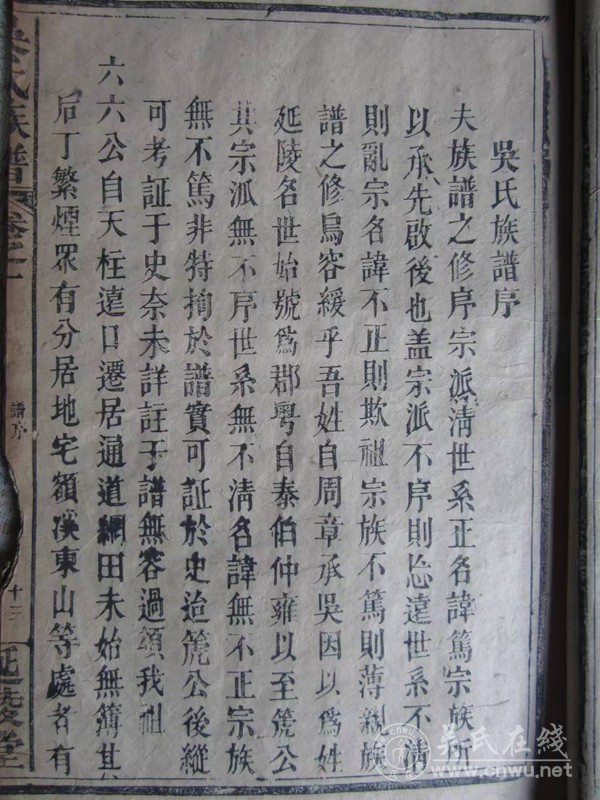 吳氏族譜序
夫族譜之修序宗派清世系正名諱篤宗族所
以承先啟後也盖宗派不序則忘遠世系不清
則亂宗名諱不正則欺祖宗族不篤則薄親族
譜之修烏容緩乎吾姓自周章承吳因以為姓
延陵名世始號為郡粵自泰伯仲雍以至篪公
其宗派無不序世系無不清名諱無不正宗族
無不篤非特掏於譜實可証於史迨篪公後縱
可考証于史奈未詳註于譜無容過頌我祖
六六公自天柱遠口遷居通道綱田未始無簿其
后丁繁煙眾有分居地宅額溪東山等處者有
吳氏族譜
卷之一
譜序
十三
延陵堂
吴氏在线
CNWU
www.cnwu.net